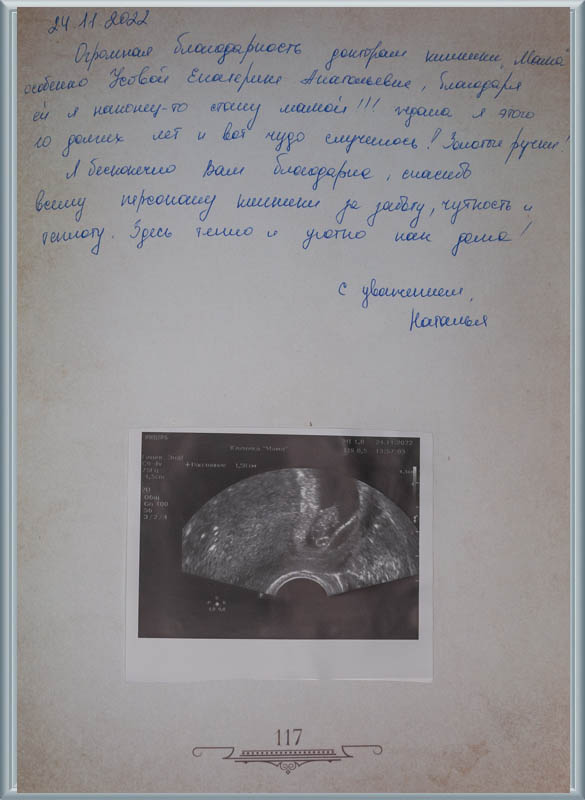 24.11.2022
Огромная благодарность докторам клиники „Мама"
особенно Усовой Екатерине Анатольевне, благодаря
ей я наконец-то стану мамой!!! Ждала я этого
10 долгих лет и вот чудо случилось! Золотые ручки!
Я бесконечно Вам благодарна, спасибо
всему персоналу клиники за заботу, чуткость и
теплоту. Здесь тепло и уютно как дома!
С уважением,
Наталья
PHILIPS
Клиника "Мама"
MI 1,0 24.11.2022
TIS 0,5
C9-4v
+ Расстояние 1,50 см
2D
Общ
Gn 100
56
3/2/4
117